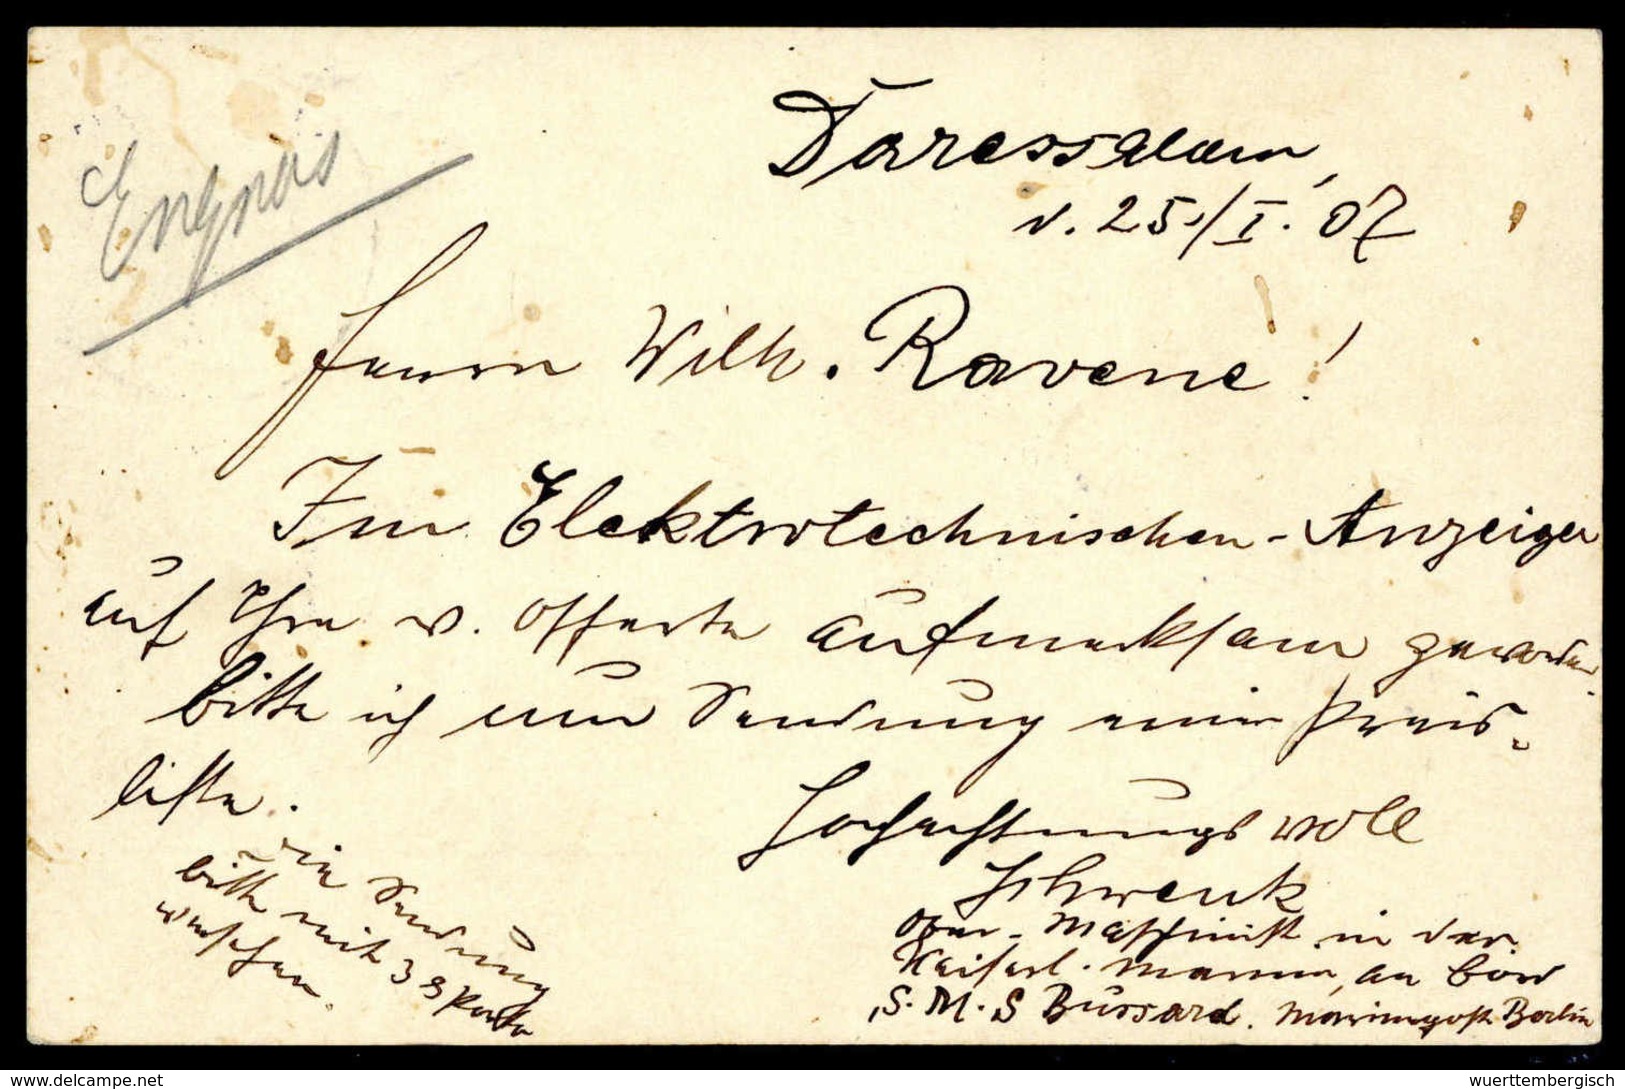 Engros
Daressalam,
d. 25./I. 07
Herrn Wilh. Ravene!
Im Elektrotechnischen-Anzeiger
auf Ihre w. Offerte aufmerksam geworden
bitte ich um Sendung einer Preis-
liste.
Hochachtungsvoll
Schwenk
Ober-Maschinist in der
Kaiserl. Marine, an Bord
S.M.S Bussard. Marinepost Berlin
die Sendung
bitte mit Porto
versehen.
delcampe.net
wuerttembergisch